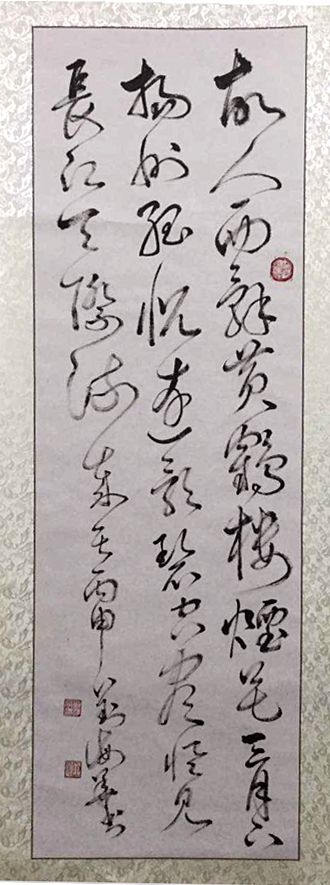 故人西辭黄鶴楼煙花三月下
揚州孤帆遠影碧空盡惟見
長江天際流 丙申